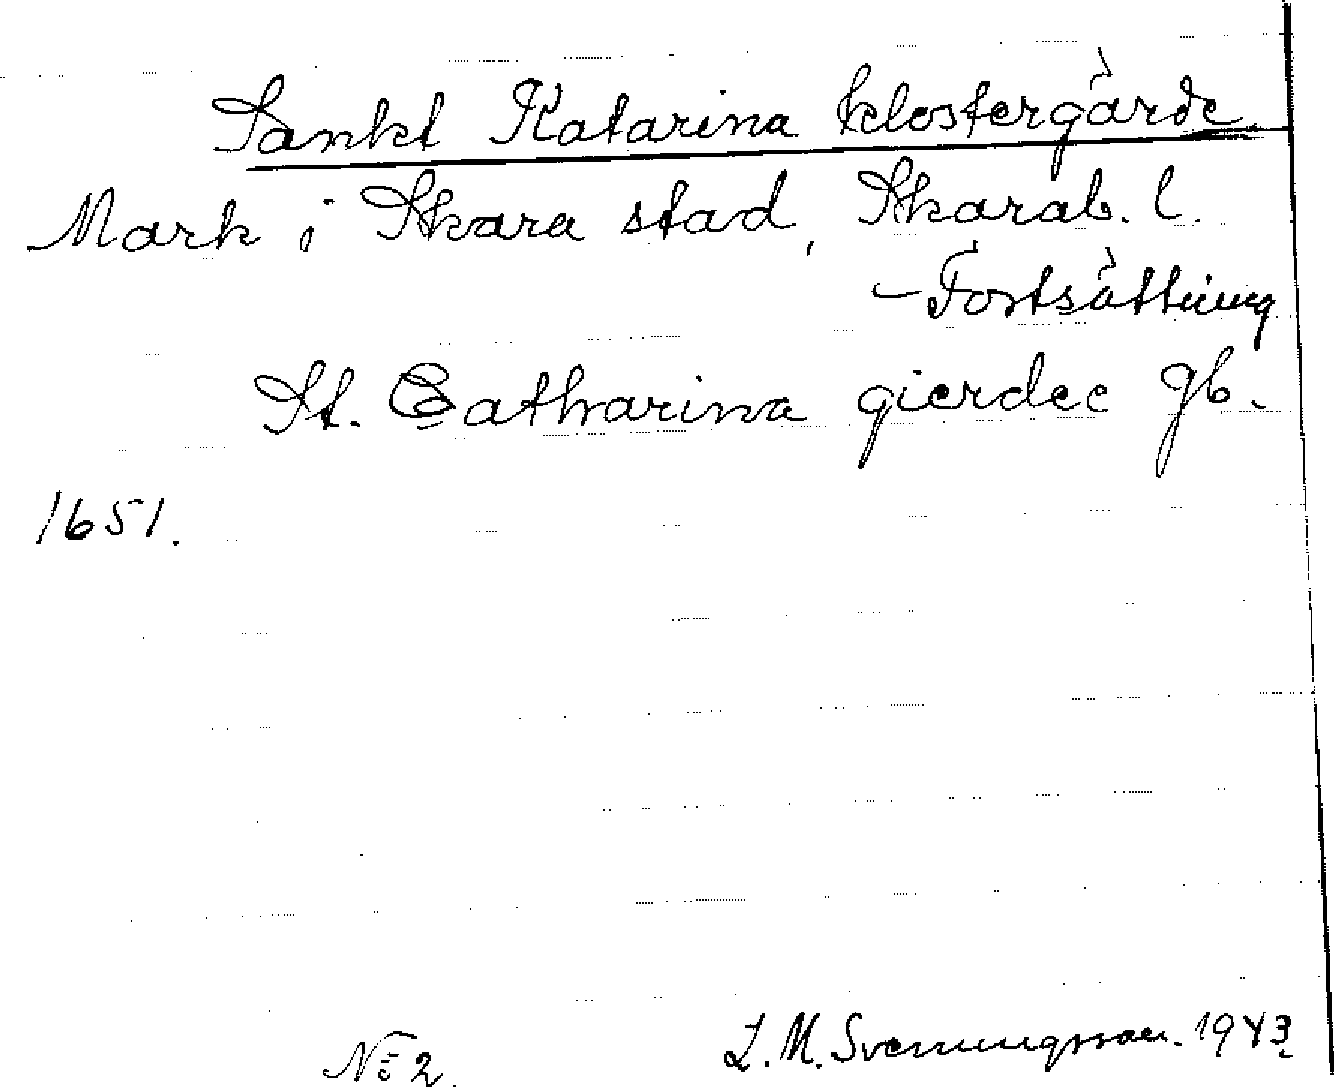 Sankt Katarina klostergärde
Mark i Skara stad, Skarab. l.
- Fortsättning
St. Catharina gierdee Jb.
1651.
No 2. L. M. Svenningsson. 1943.